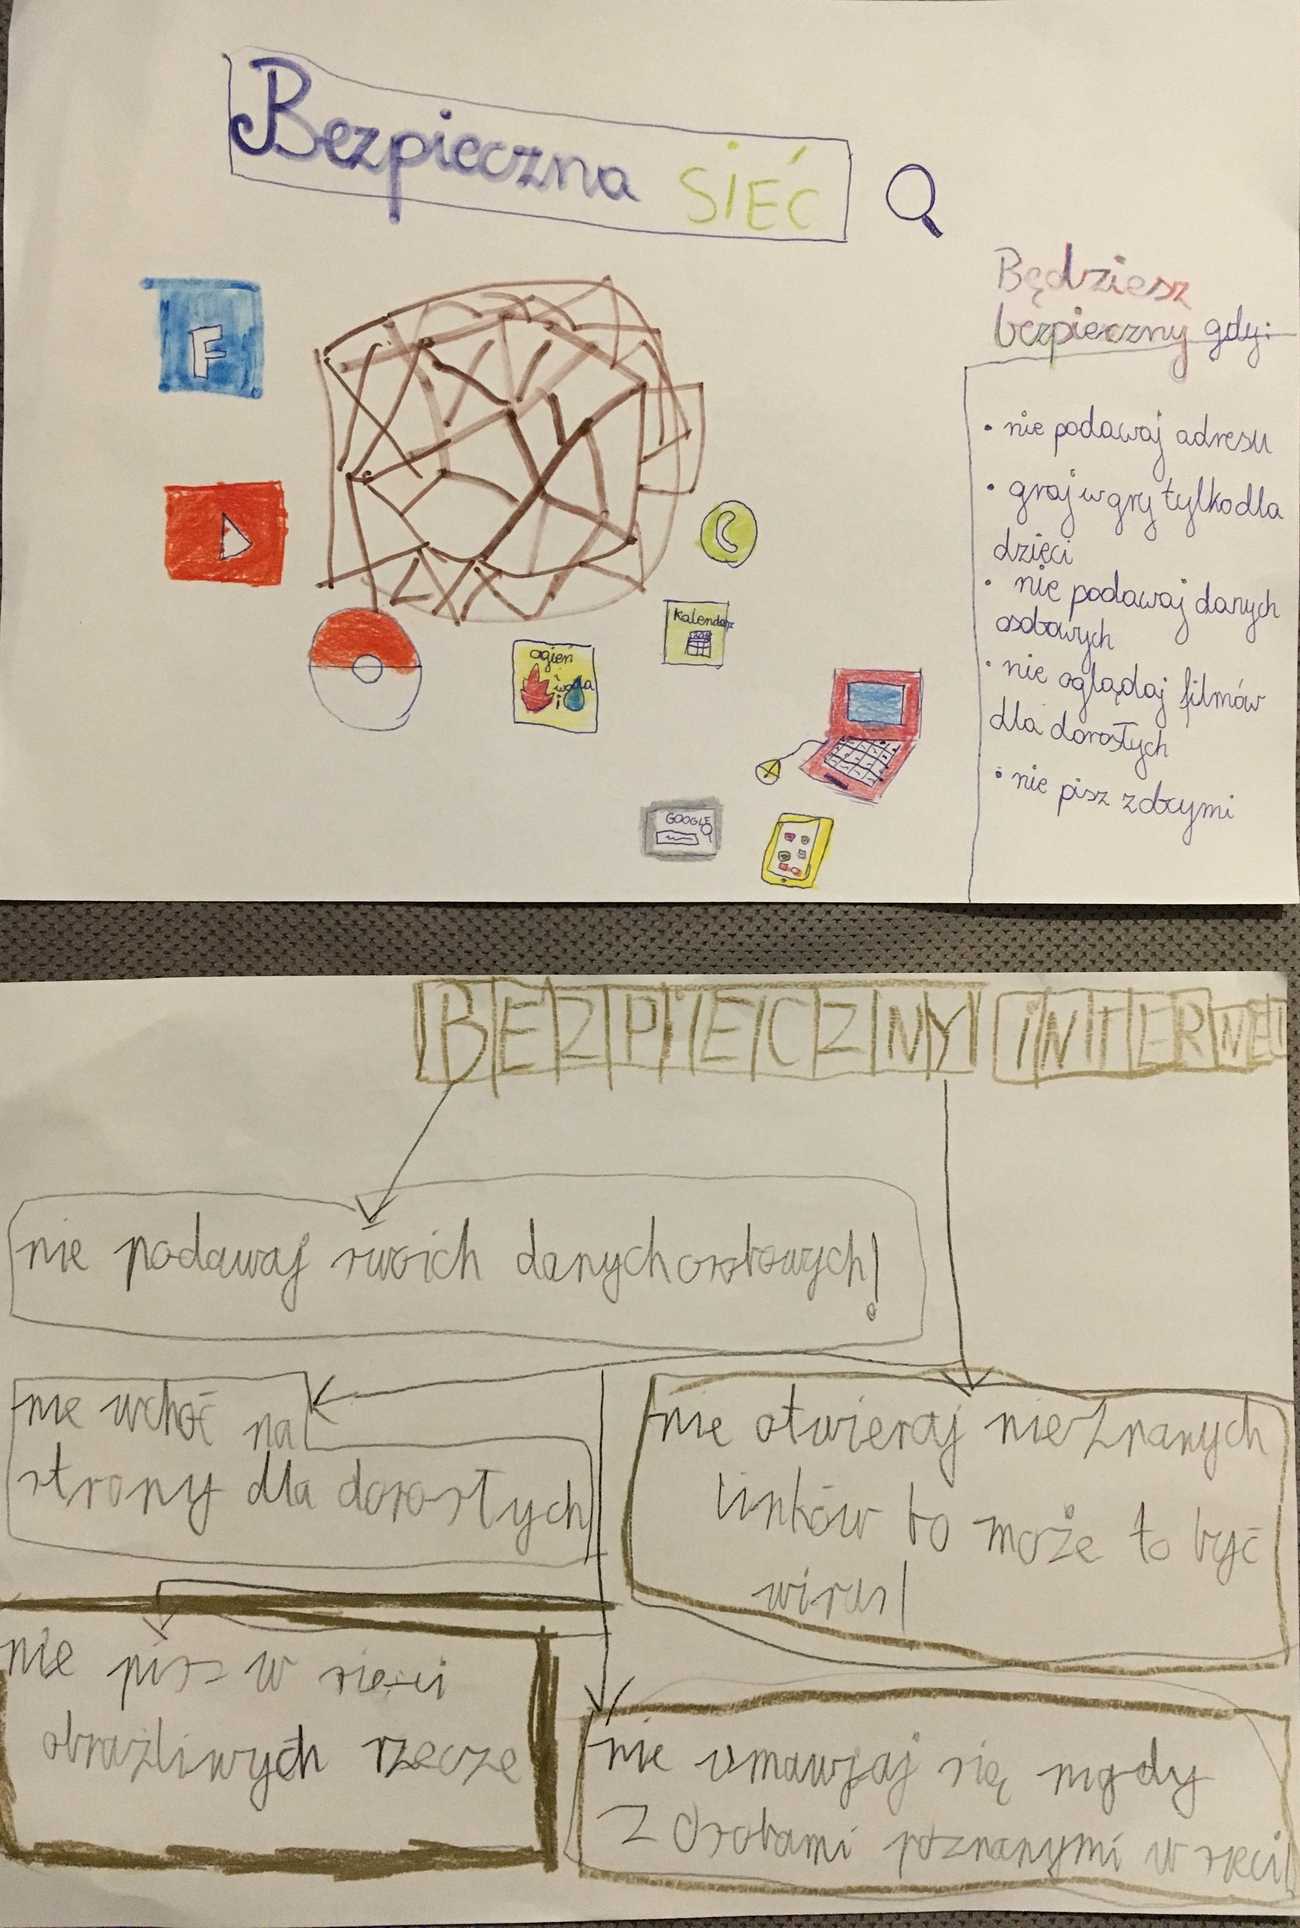 Bezpieczna SIEĆ
F
Będziesz
bezpieczny gdy:
• nie podawaj adresu
• graj w gry tylko dla
dzięci
• nie podawaj danych
osobowych
• nie oglądaj filmów
dla dorosłych
• nie pisz z obcymi
kalendarz
ogień
i woda
GOOGLE
BEZPIECZNY INTERNET
nie podawaj swoich danych osobowych!
nie wchoć na
strony dla dorosłych
nie otwieraj nieznanych
linków bo może to być
wirus!
nie pisz w sieci
obraźliwych rzeczy
nie umawiaj się nigdy
z osobami poznanymi w sieci!